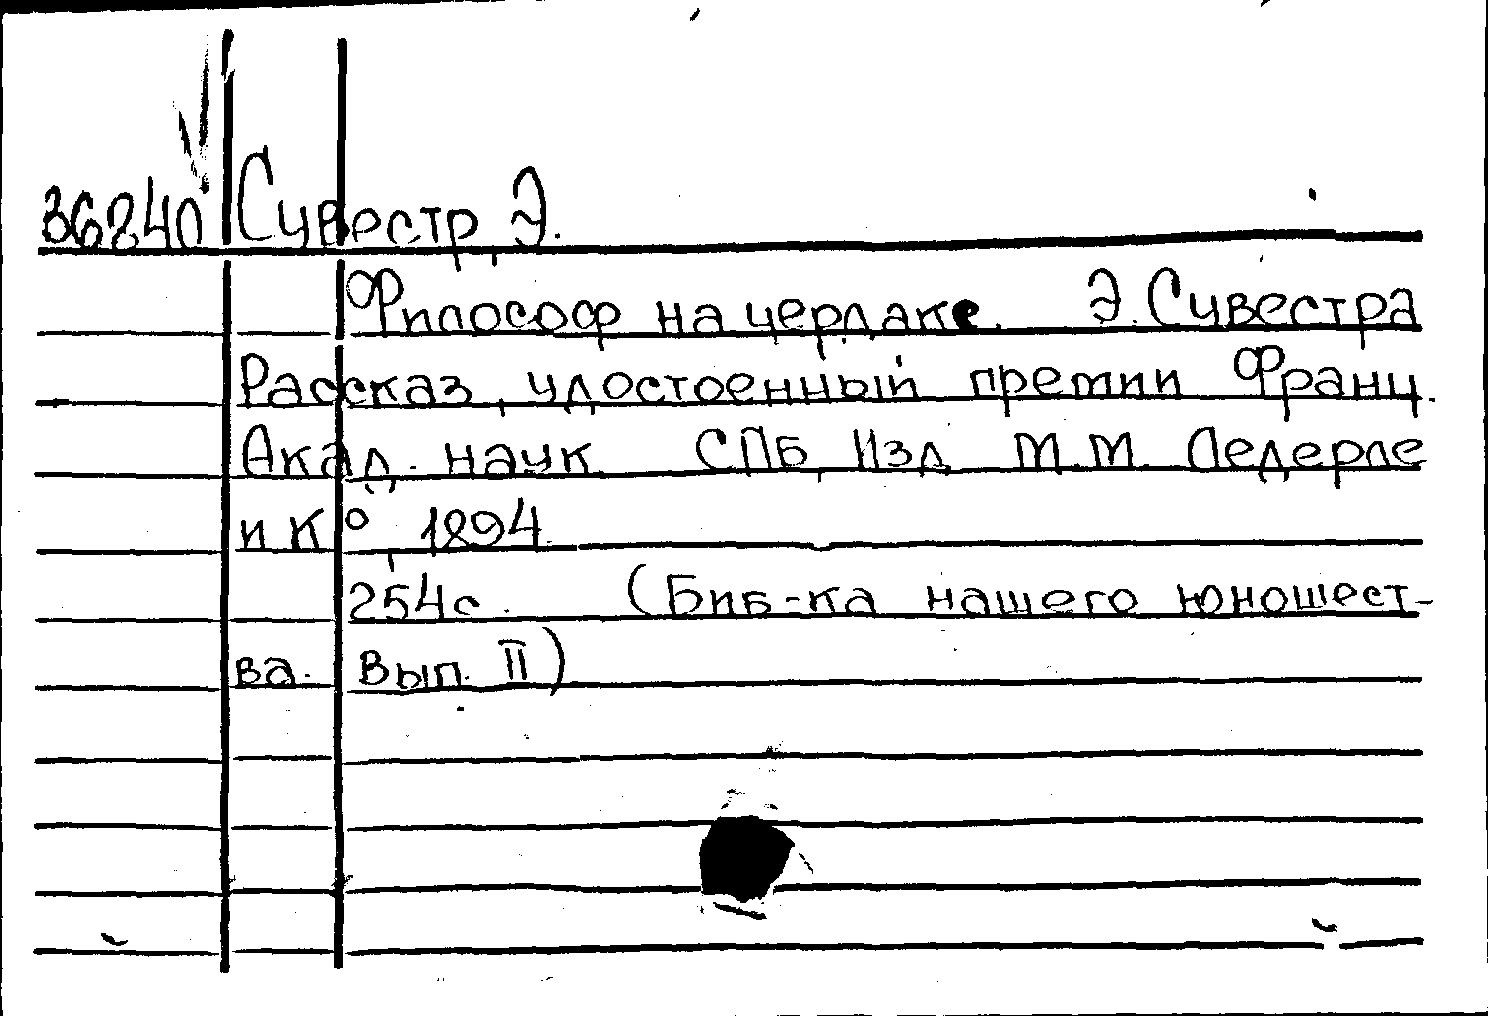 36840 Сувестр, Э.
Философ на чердаке. Э. Сувестра
Рассказ, удостоенный премии Франц.
Акад. наук. СПБ, Изд. М.М. Ледерле
и К°, 1894.
254с. (Биб-ка нашего юношест-
ва. Вып. II)